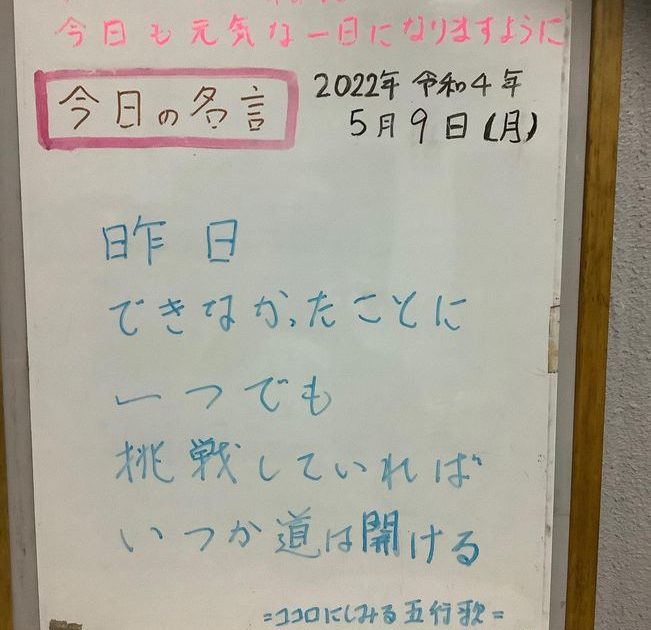 今日も元気な一日になりますように
今日の名言
2022年 令和4年
5月9日(月)
昨日
できなかったことに
一つでも
挑戦していれば
いつか道は開ける
=ココロにしみる五行歌=